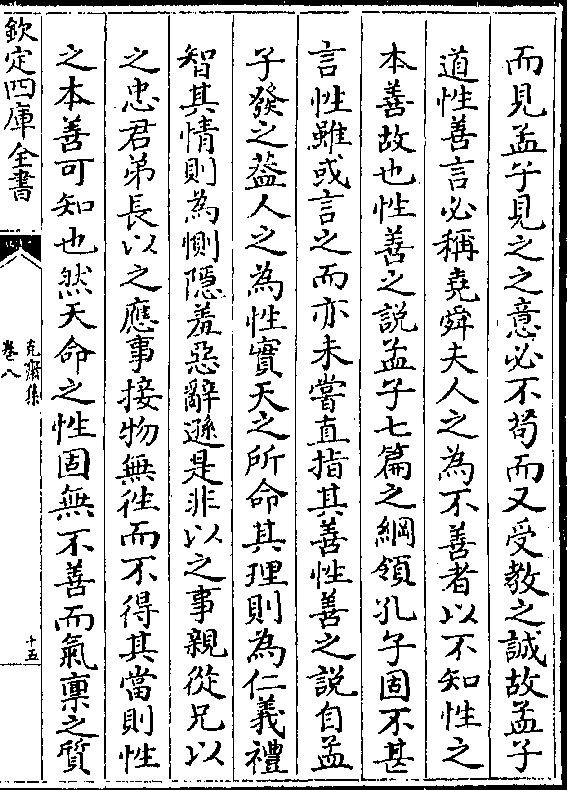 而見孟子見之之意必不茍而又受教之誠故孟子
道性善言必稱堯舜夫人之為不善者以不知性之
本善故也性善之說孟子七篇之綱領孔子固不甚
言性雖或言之而亦未嘗直指其善性善之說自孟
子發之葢人之為性實天之所命其理則為仁義禮
智其情則為惻隱羞惡辭遜是非以之事親從兄以
之忠君弟長以之應事接物無往而不得其當則性
之本善可知也然天命之性固無不善而氣稟之質
欽定四庫全書
克齋集
卷八
十五